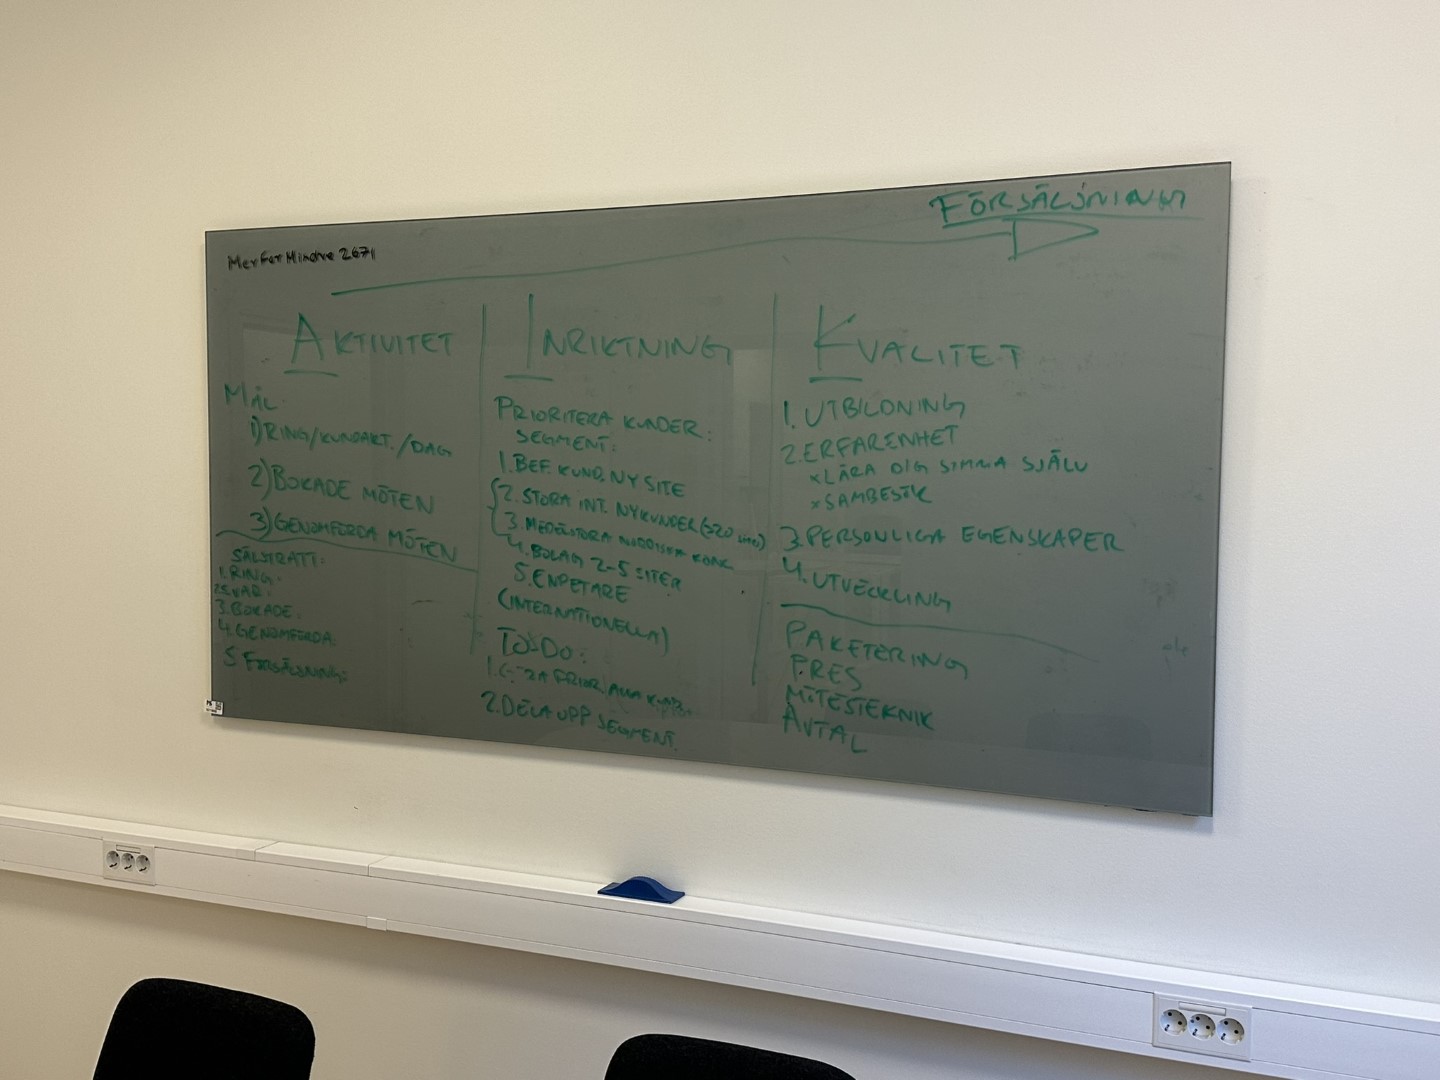 FÖRSÄLJNING
MerForMindre 2671
AKTIVITET
MÅL:
1) RING/KUNDAKT./DAG
2) BOKADE MÖTEN
3) GENOMFÖRDA MÖTEN
SÄLJSTRATT:
1. RING:
2. SVAR:
3. BOKADE:
4. GENOMFÖRDA:
5. FÖRSÄLJNING:
INRIKTNING
PRIORITERA KUNDER:
SEGMENT:
1. BEF. KUND, NY SITE
2. STORA INT. NYKUNDER (≥20
3. MEDELSTORA NORDISKA KONC.
4. BOLAG 2-5 SITER
5. ENPETARE
(INTERNATIONELLA)
TO-DO:
1. PRIOR. ALLA
2. DELA UPP SEGMENT.
KVALITET
1. UTBILDNING
2. ERFARENHET
x LÄRA DIG SIMMA SJÄLV
x SAMBESÖK
3. PERSONLIGA EGENSKAPER
4. UTVECKLING
PAKETERING
PRES
MÖTESTEKNIK
AVTAL